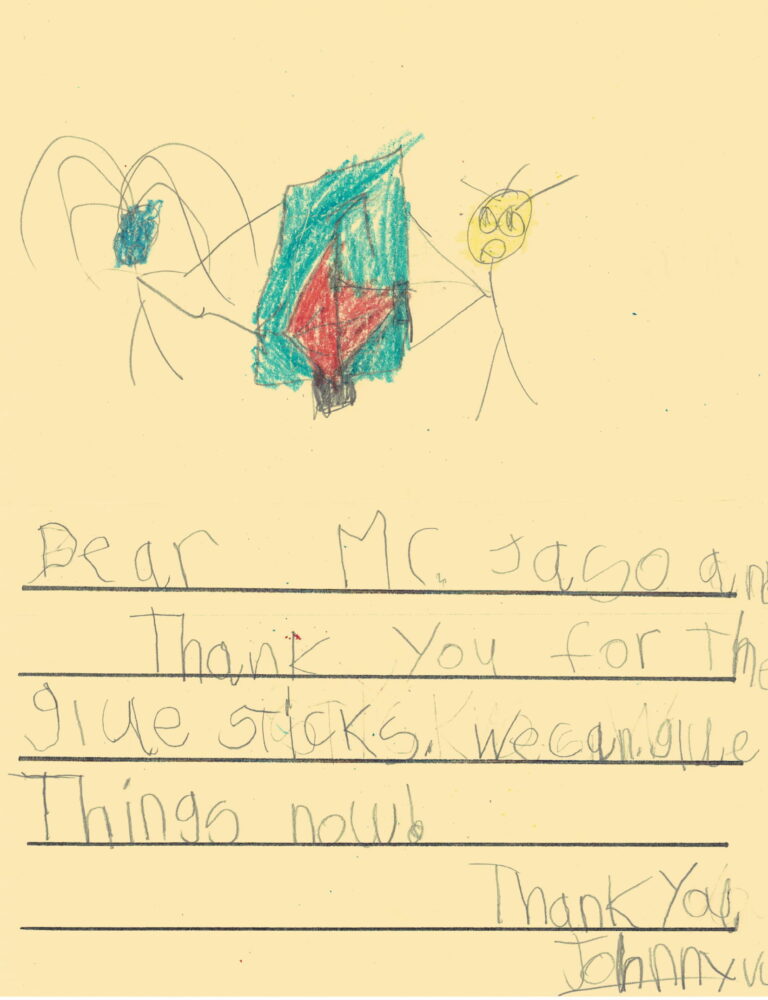 Dear Mr. Jago an
Thank you for the
glue sticks. we can glue
Things now!
Thank You
Johnny vu